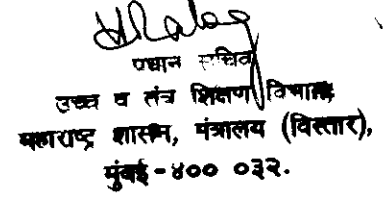 प्रधान सचिव
उच्च व तंत्र शिक्षण विभाग
महाराष्ट्र शासन, मंत्रालय (विस्तार),
मुंबई - ४०० ०३२.